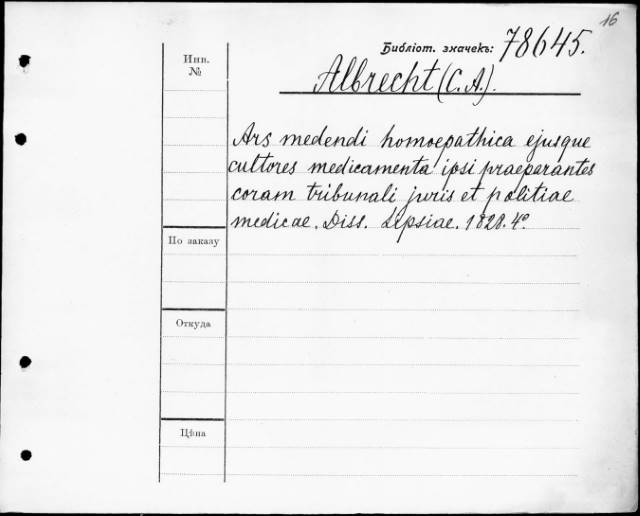 16
Библіот. значекъ: 78645.
Инв.
№
Albrecht (C. A.).
Ars medendi homoepathica ejusque
cultores medicamenta ipsi praeparantes
coram tribunali juris et politiae
medicae. Diss. Lipsiae. 1828. 4°.
По заказу
Откуда
Цѣна